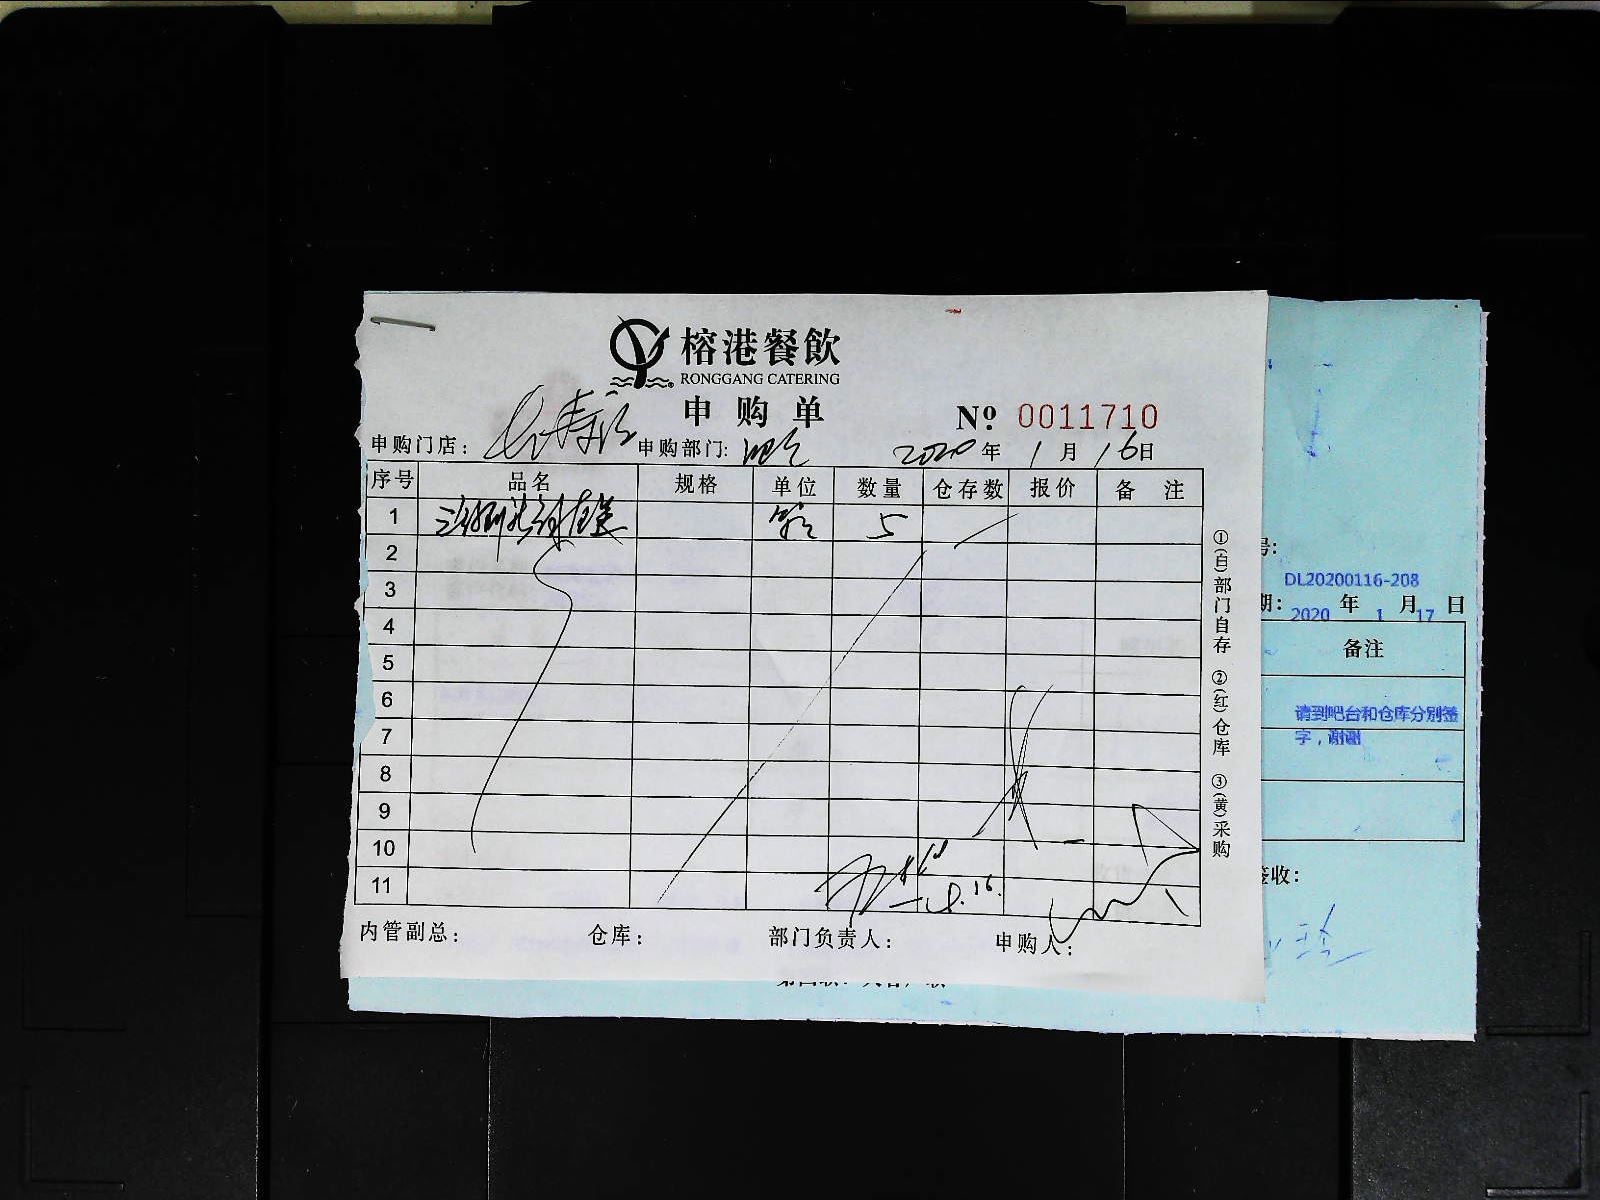 榕港餐飲
RONGGANG CATERING
申购单
Nº 0011710
申购门店: 申购部门: 吧台 2020年1月16日
序号 品名 规格 单位 数量 仓存数 报价 备注
1 5
2
3
4
5
6
7
8
9
10
11
一.16.
内管副总: 仓库: 部门负责人: 申购人:
①(白)部门自存 ②(红)仓库 ③(黄)采购
号:
DL20200116-208
期: 2020年1月17日
备注
请到吧台和仓库分别签
字，谢谢
签收: